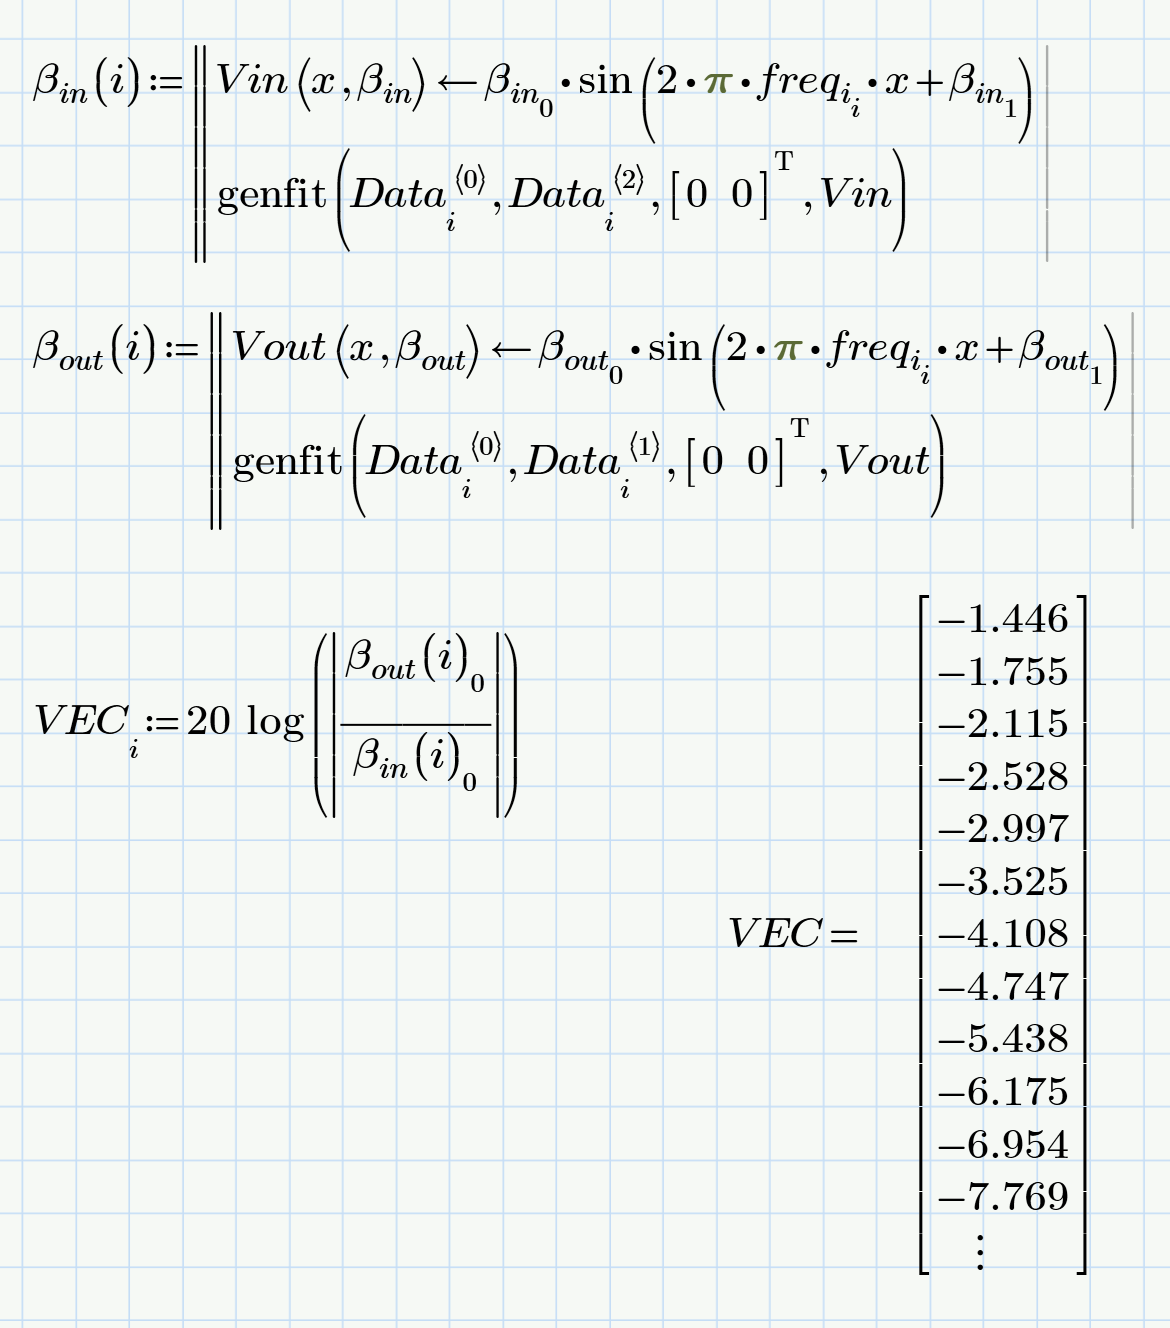 β_in(i):=‖ Vin(x,β_in)←β_in_0·sin(2·π·freq_i_i·x+β_in_1)
genfit(Data_i^⟨0⟩,Data_i^⟨2⟩,[0 0]^T,Vin)
β_out(i):=‖ Vout(x,β_out)←β_out_0·sin(2·π·freq_i_i·x+β_out_1)
genfit(Data_i^⟨0⟩,Data_i^⟨1⟩,[0 0]^T,Vout)
VEC_i:=20 log(|β_out(i)_0/β_in(i)_0|)
VEC=
−1.446
−1.755
−2.115
−2.528
−2.997
−3.525
−4.108
−4.747
−5.438
−6.175
−6.954
−7.769
⋮